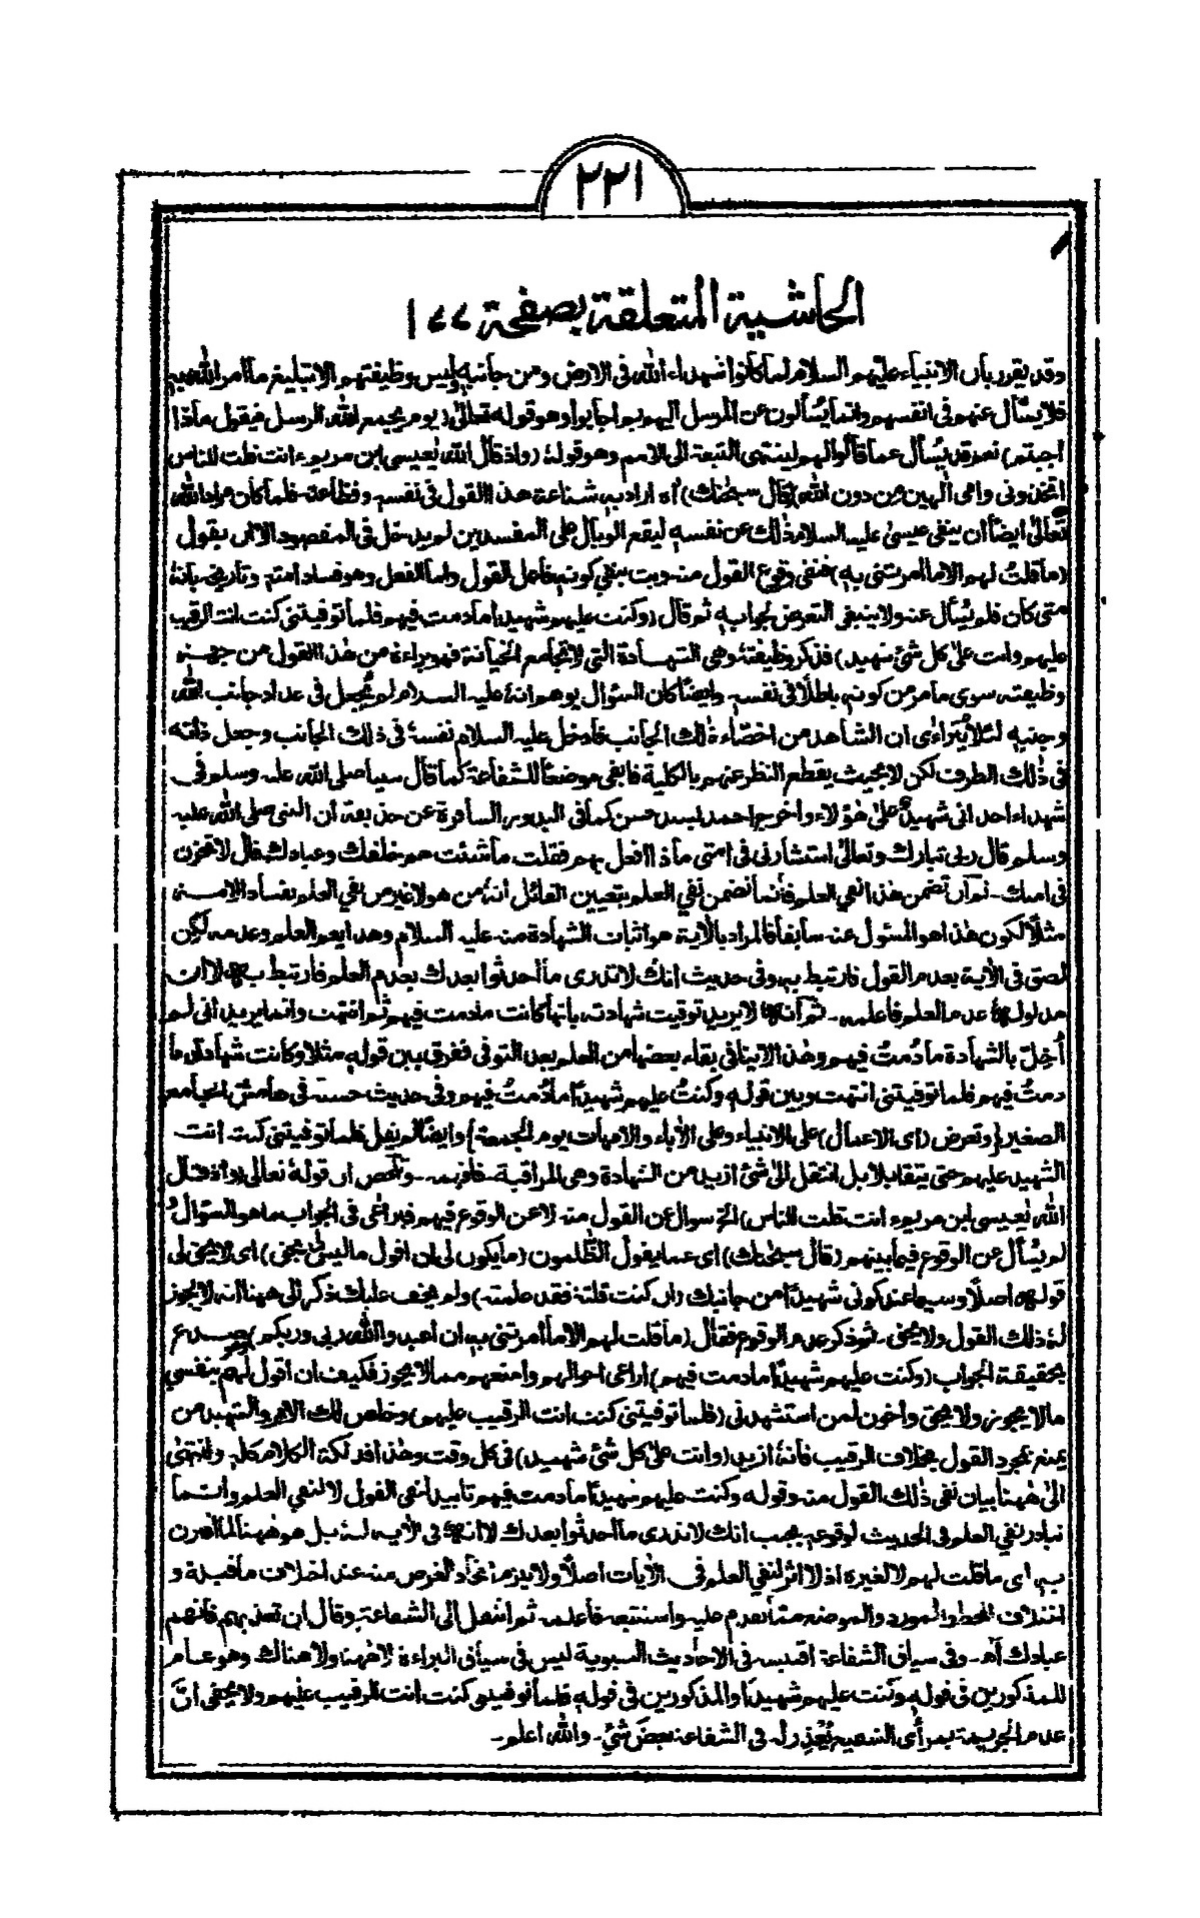 ٢٢١
الحاشية المتعلقة بصفحة ١٧٧
وقد يقرر بان الانبياء عليهم السلام لما كانوا شهداء الله فى الارض ومن جانبه وليس وظيفتهم الا تبليغ ما امر الله به
فلا يسأل عنهم فى انفسهم وانما يسألون عن المرسل اليهم بم اجابوا وهو قوله تعالى (يوم يجمع الله الرسل فيقول ماذا
اجبتم) نعم قد يسأل عما قالوا لهم لينتهى التبعة الى الامم وهو قوله (واذ قال الله يعيسى ابن مريم ءانت قلت للناس
اتخذونى وامى الهين من دون الله (قال سبحنك) اه اراد به شناعة هذا القول فى نفسه وفظاعته فلما كان مراد الله
تعالى ايضا ان ينفى عيسى عليه السلام ذلك عن نفسه ليقع الوبال على المفسدين لم يدخل فى المقصود الا ان يقول
(ما قلت لهم الا ما امرتنى به) فنفى وقوع القول منه وبت بنفي كونه فاعل القول واما الفعل وهو فساد امته وتاريخه بانه
متى كان فلم يسأل عنه ولا ينبغى التعرض لجوابه ثم قال (وكنت عليهم شهيدا ما دمت فيهم فلما توفيتنى كنت انت الرقيب
عليهم وانت على كل شئ شهيد) فذكر وظيفته وهى الشهادة التى لا تجامع الخيانة فهو براءة من هذا القول من جهة
وظيفته سوى ما مر من كونه باطلا فى نفسه وايضا كان السؤال يوهم انه عليه السلام لم يجعل فى عداد جانب الله
وجنبه لئلا يتراءى ان الشاهد من اخصاء ذلك الجانب فادخل عليه السلام نفسه فى ذلك الجانب وجعل ذاته
فى ذلك الطرف لكن لا بحيث يقطع النظر عنهم بالكلية فابقى موضعا للشفاعة كما قال سيدنا صلى الله عليه وسلم فى
شهداء احد انى شهيد على هؤلاء واخرج احمد بسند حسن كما فى البدور السافرة عن حذيفة ان النبى صلى الله عليه
وسلم قال ربى تبارك وتعالى استشارنى فى امتى ماذا افعل بهم فقلت ما شئت هم خلقك وعبادك قال لا نخزن
فى امتك - ثم ان تضمن هذا نفي العلم فانما تضمن نفي العلم بتعيين القائل انه من هو لا غير من بقي العلم بفساد الامة
مثلا لكون هذا هو المسئول عنه سابقا فالمراد بالآية هو اثبات الشهادة منه عليه السلام وهذا يعم العلم وعدمه لكن
لصق فى الآية بعدم القول فارتبط به وفى حديث انك لا تدرى ما احدثوا بعدك بعدم العلم فارتبط به لا ان
مدلولها عدم العلم فاعلمه - ثم انه لا يريد توقيت شهادته بانها كانت ما دمت فيهم ثم انتهت وانما يريد انى لم
أخل بالشهادة ما دمت فيهم وهذا لا ينافى بقاء بعضها من العلم بعد التوفى ففرق بين قوله مثلا وكانت شهادتى ما
دمت فيهم فلما توفيتنى انتهت وبين قوله وكنت عليهم شهيدا ما دمت فيهم وفى حديث حسنه فى هامش الجامع
الصغير (وتعرض (اى الاعمال) على الانبياء وعلى الآباء والامهات يوم الجمعة) وايضا لم يقل فلما توفيتنى كنت انت
الشهيد عليهم حتى يتقابلا بل انتقل الى شئ ازيد من الشهادة وهى المراقبة - فافهمه - وتلخص ان قوله تعالى (واذ قال
الله يعيسى ابن مريم ءانت قلت للناس) الخ سوال عن القول منه لا عن الوقوع فيهم فيراعى فى الجواب ما هو السؤال و
لم يسأل عن الوقوع فيما بينهم (قال سبحنك) اى عما يقول الظلمون (ما يكون لى ان اقول ما ليس لى بحق) اى لا يحق لى
قوله اصلا وسيما عند كونى شهيدا من جانبك (ان كنت قلته فقد علمته) ولم يخف عليك ذكر الى ههنا انه لا يجوز
له ذلك القول ولا يحق - ثم ذكر عدم الوقوع فقال (ما قلت لهم الا ما امرتنى به ان اعبدوا الله ربى وربكم) صدع
بحقيقة الجواب (وكنت عليهم شهيدا ما دمت فيهم) اراعى احوالهم وامنعهم مما لا يجوز فكيف ان اقول لهم بنفسي
ما لا يجوز ولا يحق واخون لمن استشهدنى (فلما توفيتنى كنت انت الرقيب عليهم) وخلص لك الامر والشهيد من
يمنع بمجرد القول بخلاف الرقيب فانه ازيد (وانت على كل شئ شهيد) فى كل وقت وهذا فذلكة الكلام كله وانتهى
الى ههنا بيان نفى ذلك القول منه وقوله وكنت عليهم شهيدا ما دمت فيهم تابيد لنفى القول لا لنفي العلم وانما
تبادر نفي العلم فى الحديث لوقوعه بجنب انك لا تدرى ما احدثوا بعدك لا انه فى الآية له بل هو ههنا لما اقترن
به اى ما قلت لهم لا لغيره اذ لا اثر لنفي العلم فى الآيات اصلا ولا يلزم اتحاد الغرض منه عند اختلاف ما قبله و
اختلاف المورد والموضع مما تقدم عليه واستتبعه فاعلمه ثم انتقل الى الشفاعة وقال ان تعذبهم فانهم
عبادك اه - وفى سياق الشفاعة اقتبسه فى الاحاديث النبوية ليس فى سياق البراءة لا ههنا ولا هنالك وهو عام
للمذكورين فى قوله وكنت عليهم شهيدا والمذكورين فى قوله فلما توفيتنى كنت انت الرقيب عليهم ولا يخفى ان
عدم الجريمة بمرأى الشفيع يعذر له فى الشفاعة بعض شئ - والله اعلم -